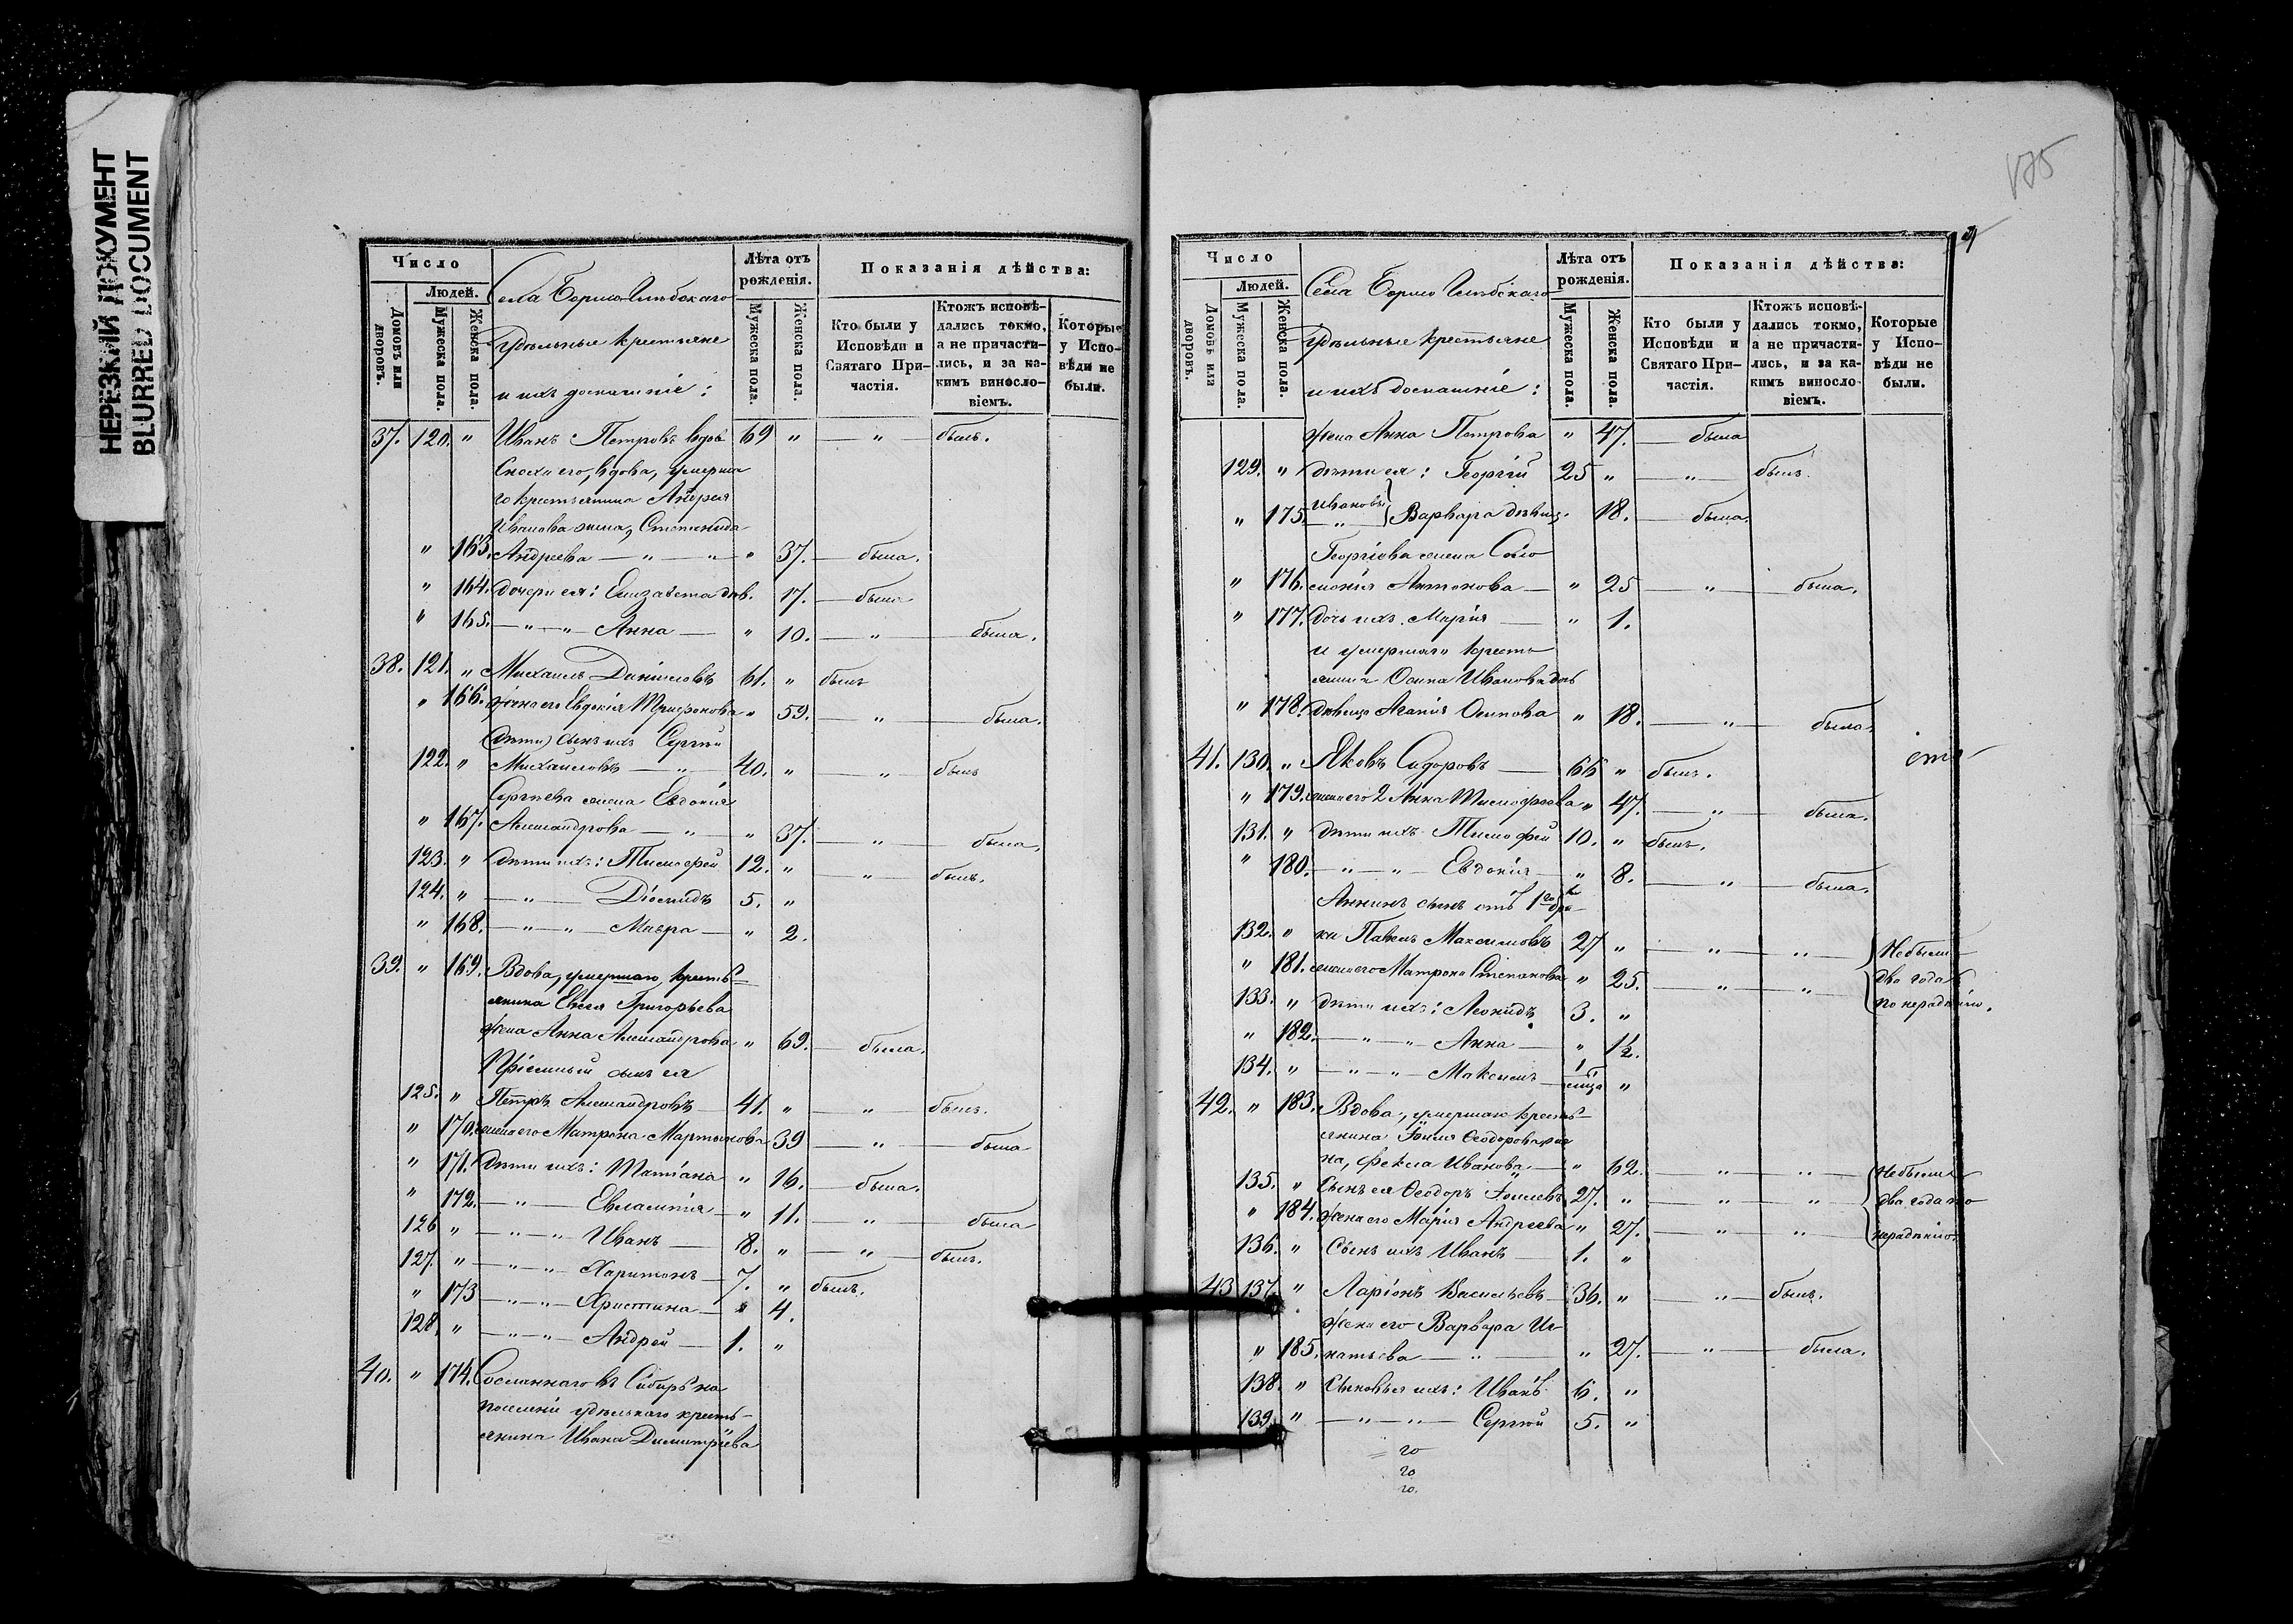 НЕРЕЗКИЙ ДОКУМЕНТ
BLURRED DOCUMENT
Число
Людей.
Домовъ или дворовъ.
Мужеска пола.
Женска пола.
Села Борисо-Глѣбскаго
удѣльные крестьяне
и ихъ домашніе:
Лѣта отъ рожденія.
Мужеска пола.
Женска пола.
Показанія дѣйства:
Кто были у Исповѣди и Святаго Причастія.
Ктожъ исповѣдались токмо, а не причастились, и за какимъ винословіемъ.
Которые у Исповѣди не были.
37. 120. " Иванъ Петровъ вдов 69 " — " — былъ.
его, вдова, умерша
го крестьянина Андрея
Иванова жена, Степанида
" 163. Андреева — " — " " 37. — была.
" 164. дочери ея: Елизавета дѣв. 17. — была
" 165. — " — " — Анна — " 10. — " — была.
38. 121. " Михаилъ Даниловъ 61. " былъ
" 166. Жена его Евдокія Трифонова " 59. — " — была.
(дѣти) сынъ ихъ Сергѣй
122. " Михаиловъ — " — 40. " — " — былъ
Сергѣева жена Евдокія
" 167. Александрова — " — " 37. — " — была.
123. " дѣти ихъ: Тимофей 12. " — " — былъ.
124. " — " — Діомидъ 5. "
" 168. — " — " — Мавра — " 2.
39. " 169. Вдова, умершаго кресть-
янина Евсея Григорьева
жена Анна Александрова " 69. — была.
Пріемный сынъ ея
125. " Петръ Александровъ 41. " — " — былъ.
" 170. жена его Матрона Мартынова 39 — " — была
" 171. дѣти ихъ: Татіана " 16. — была.
" 172. — " — Евлампія — " 11. — " — была
126 " — " — " — Иванъ — 8. " — " — былъ.
127. " — " — " — Харитонъ — 7. " былъ.
" 173 — " — " — Христина — " 4.
128. " — " — " — Андрей — 1. "
40. " 174. Сосланнаго въ Сибирь на
поселеніе удѣльнаго кресть-
янина Ивана Димитріева
175
Число
Людей.
Домовъ или дворовъ.
Мужеска пола.
Женска пола.
Села Борисо Глѣбскаго
удѣльные крестьяне
и ихъ домашніе:
Лѣта отъ рожденія.
Мужеска пола.
Женска пола.
Показанія дѣйства:
Кто были у Исповѣди и Святаго Причастія.
Ктожъ исповѣдались токмо, а не причастились, и за какимъ винословіемъ.
Которые у Исповѣди не были.
жена Анна Петрова " 47. — была
129. " дѣти ея: Георгій 25 " — " — былъ.
" 175. Ивановы } Варвара дѣвиц. 18. — была.
Георгіева жена Соло
" 176. монія Антонова — " 25 — " — была.
" 177. дочь ихъ Марія — " 1.
и умершаго кресть
янина Осипа Иванова доч
" 178. дѣвица Агапія Осипова " 18. — " — была.
41. 130. " Яковъ Сидоровъ — 66 " былъ.
" 179. жена его 2 Анна Тимофеева " 47. — " — была.
131. " дѣти ихъ Тимофей 10. " былъ.
" 180. — " — " — Евдокія — " 8. — " — была.
Аннинъ сынъ отъ 1го бра-
132. " ка Павелъ Максимовъ 27 " — " — " — Небыли
" 181. жена его Матрона Степанова " 25. — " — " — два года
133. " дѣти ихъ: Леонидъ 3. " по нерадѣнію.
" 182. — " — " — Анна — " 1½.
134. " — " — " — Максимъ "
42. " 183. Вдова, умершаго кресть-
янина Ѳеодорова же
на, Фекла Иванова — " 62. — " — " — Небыли
135. " Сынъ ея Ѳеодоръ 27. " — " — " два года по
" 184. жена его Марія Андреева " 27. — " — " — нерадѣнію.
136. " Сынъ ихъ Иванъ — 1. "
43 137. " Ларіонъ Васильевъ 36. " — " — былъ.
жена его Варвара Иг
" 185. натьева — " — " 27. — " — была.
138. " Сыновья ихъ: Иванъ 6. "
139. " — " — " — Сергѣй 5. "